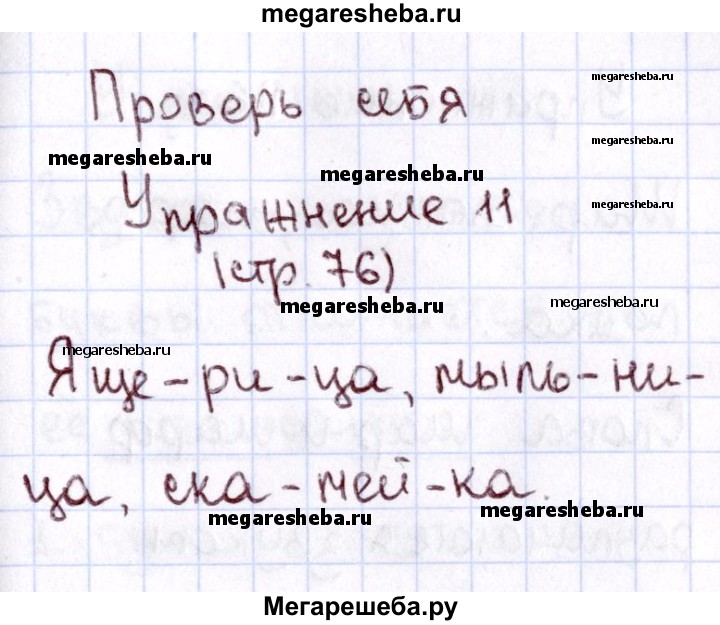 megaresheba.ru
megaresheba.ru
Проверь себя
megaresheba.ru
megaresheba.ru
megaresheba.ru
Упражнение 11
megaresheba.ru
(стр. 76)
megaresheba.ru
megaresheba.ru
megaresheba.ru
Яще-ри-ца, мыль-ни-
ца, ска-мей-ка.
megaresheba.ru
megaresheba.ru
Мегарешеба.ру